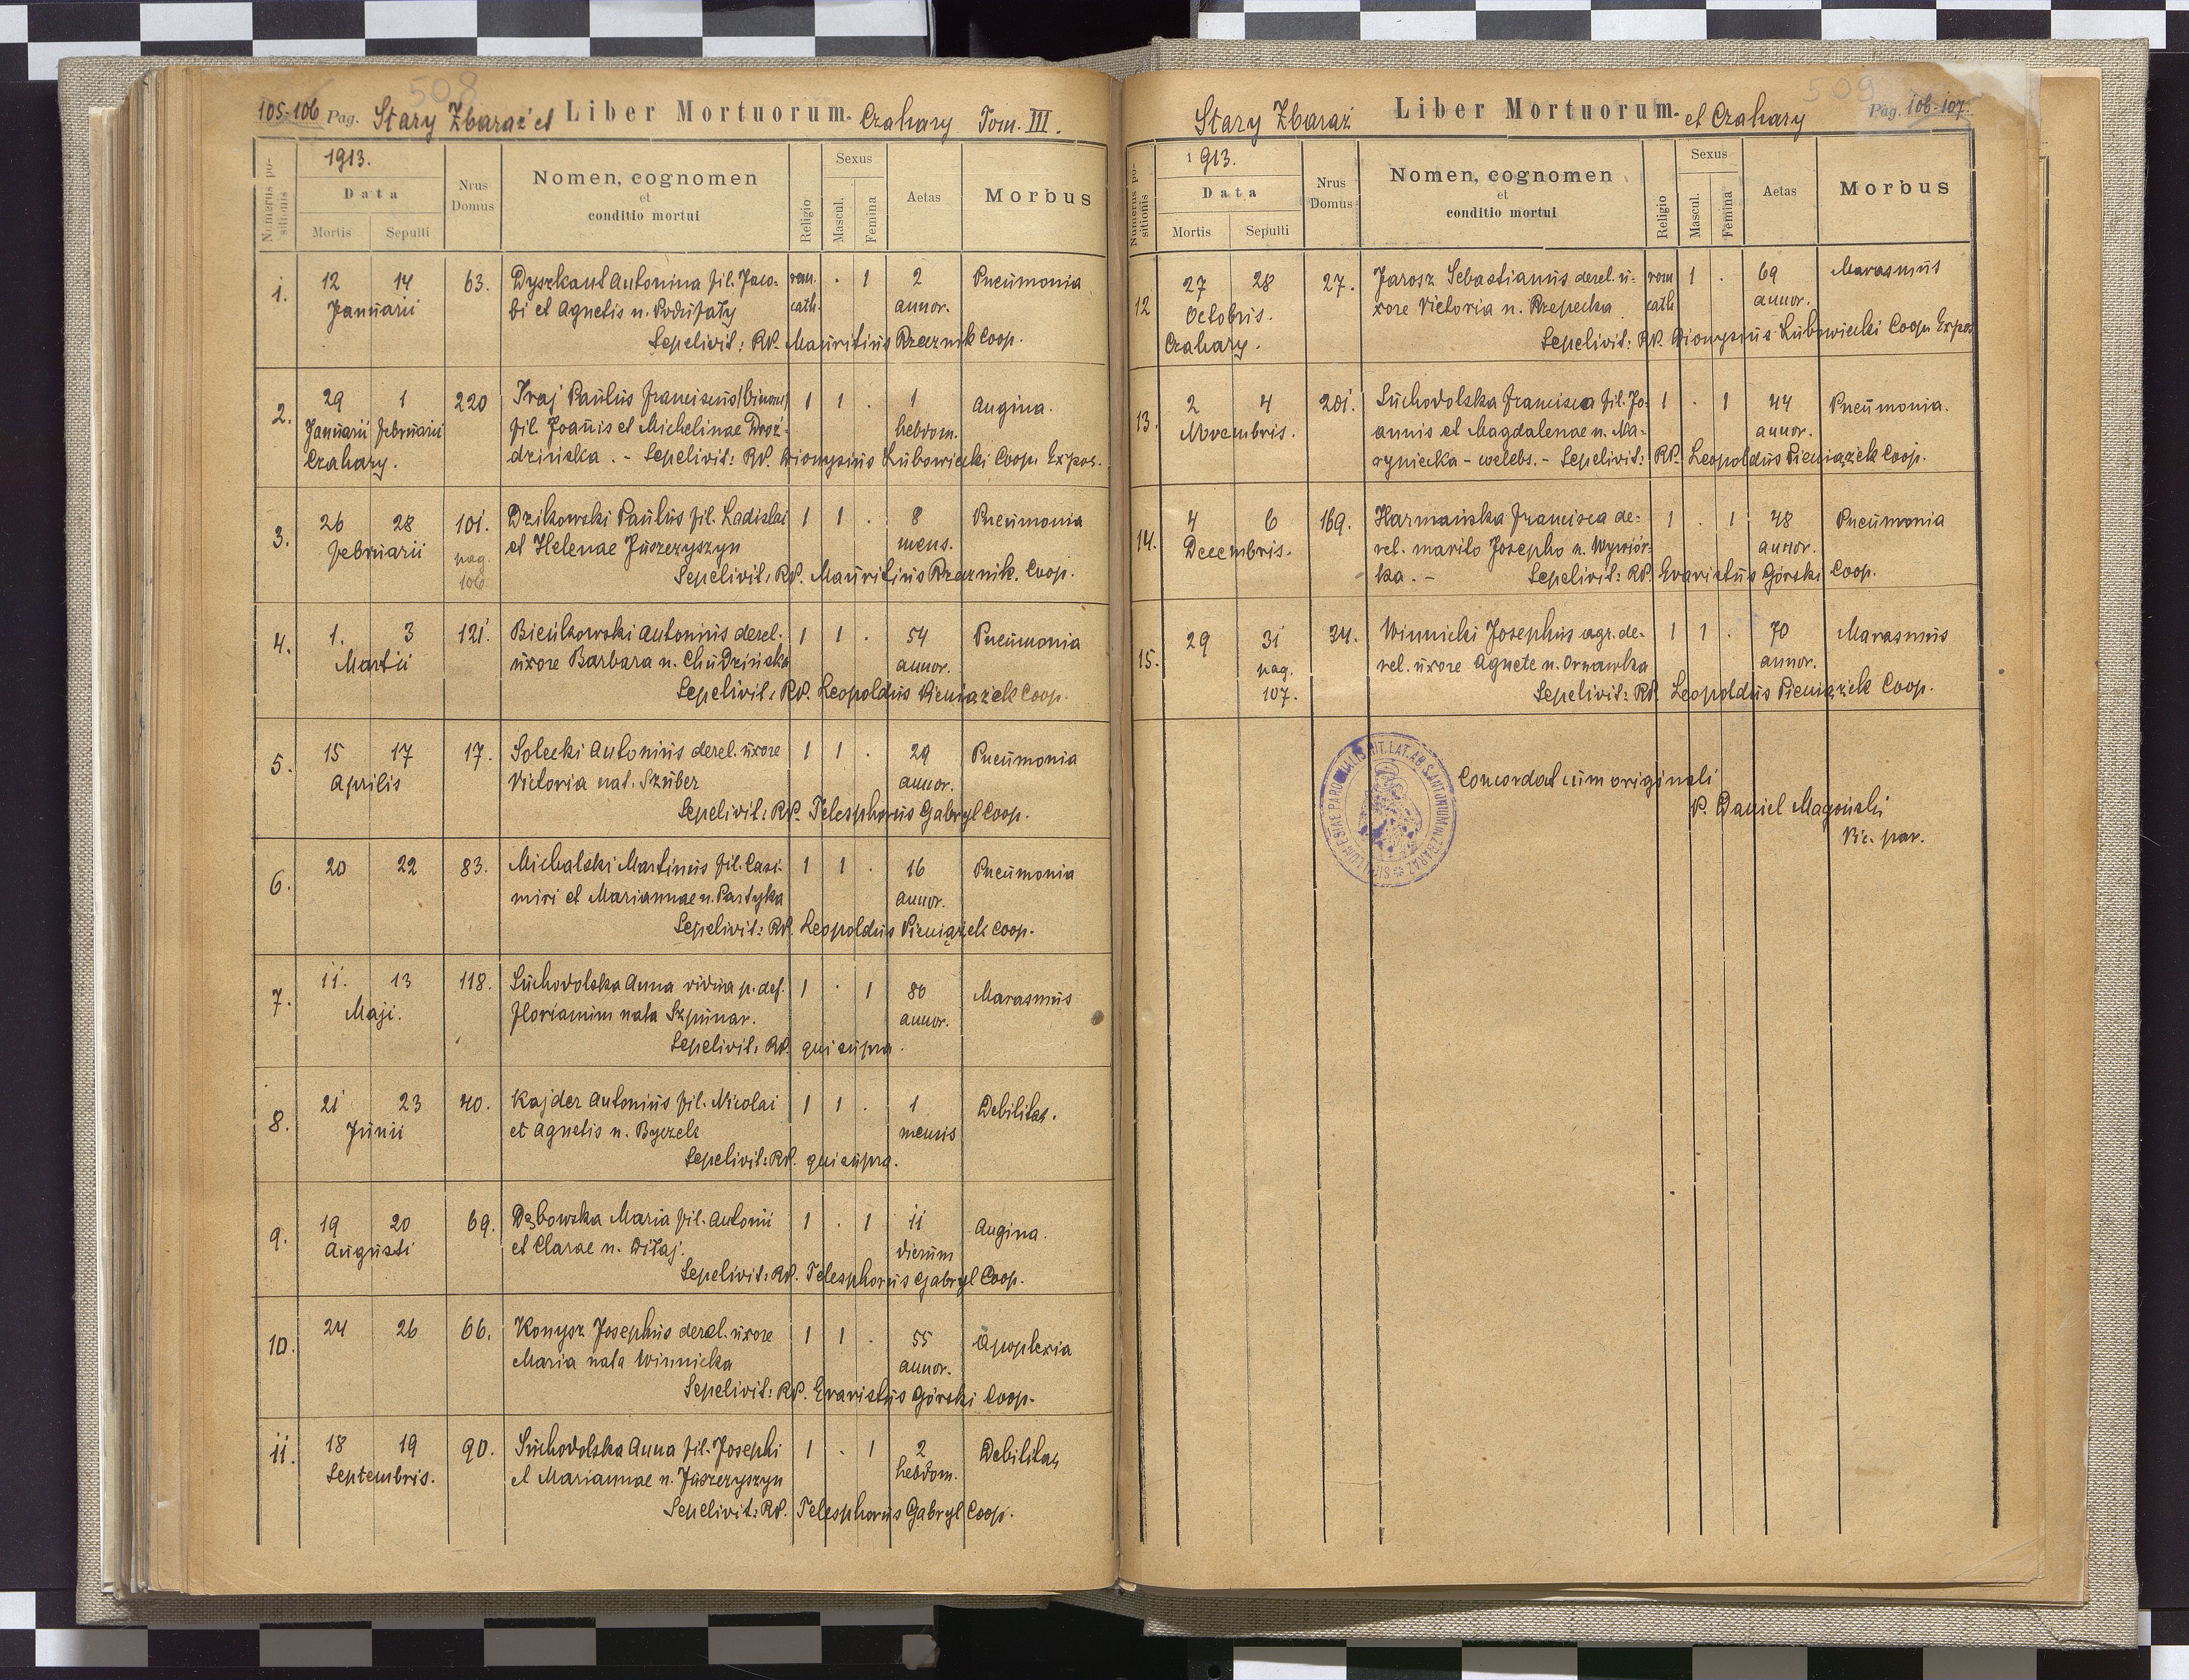 508
105-106 Pag. Stary Zbaraż et Liber Mortuorum. Czahary Tom. III.
Numerus positionis
1913.
Data
Mortis Sepulti
Nrus Domus
Nomen, cognomen
et
conditio mortui
Religio
Sexus
Mascul. Femina
Aetas
Morbus
1. 12 14 63. Dyszkant Antonina fil. Jaco- rom. . 1 2 Pneumonia
Januarii bi et Agnetis n. Podufały cath. annor.
Sepelivit: RP. Mauritius Przeznik Coop.
2. 29 1 220 Traj Paulus Franciscus (binom) 1 1 . 1 Angina.
Januarii Februarii fil. Joannis et Michelinae Droź- hebdom.
Czahary. dzińska. - Sepelivit: RP. Dionysius Lubowiecki Coop. Expos.
3. 26 28 101. Dzikowski Paulus fil. Ladislai 1 1 . 8 Pneumonia
Februarii pag. et Helenae Juszczyszyn mens.
106 Sepelivit: RP. Mauritius Przeznik. Coop.
4. 1. 3 121. Bieńkowski Antonius derel. 1 1 . 54 Pneumonia
Martii uxore Barbara n. Chudzińska annor.
Sepelivit: RP. Leopoldus Pieniążek Coop.
5. 15 17 17. Solecki Antonius derel. uxore 1 1 . 29 Pneumonia
Aprilis Victoria nat. Szuber annor.
Sepelivit: RP. Telesphorus Gabryl Coop.
6. 20 22 83. Michalski Martinus fil. Casi- 1 1 . 16 Pneumonia
miri et Mariannae n. Partyka annor.
Sepelivit: RP. Leopoldus Pieniążek Coop.
7. 11. 13 118. Suchodolska Anna vidua p. def. 1 . 1 80 Marasmus
Maji. Florianum nata Szpunar. annor.
Sepelivit: RP. qui supra.
8. 21 23 40. Kajder Antonius fil. Nicolai 1 1 . 1 Debilitas.
Junii et Agnetis n. Byczek mensis
Sepelivit: RP. qui supra.
9. 19 20 69. Dębowska Maria fil. Antonii 1 . 1 11 Angina.
Augusti et Clarae n. Witaj. dierum
Sepelivit: RP. Telesphorus Gabryl Coop.
10. 24 26 66. Konysz Josephus derel. uxore 1 1 . 55 Apoplexia
Maria nata Winnicka annor.
Sepelivit: RP. Evaristus Górski Coop.
11. 18 19 90. Suchodolska Anna fil. Josephi 1 . 1 2 Debilitas
Septembris. et Mariannae n. Juszczyszyn hebdom.
Sepelivit: RP. Telesphorus Gabryl Coop.
509
Stary Zbaraż Liber Mortuorum. et Czahary Pag. 106-107.
Numerus positionis
1913.
Data
Mortis Sepulti
Nrus Domus
Nomen, cognomen
et
conditio mortui
Religio
Sexus
Mascul. Femina
Aetas
Morbus
12 27 28 27. Jarosz Sebastianus derel. u- rom 1 . 69 Marasmus
Octobris. xore Victoria n. Przepecka cath annor.
Czahary. Sepelivit: RP. Dionysius Lubowiecki Coop. Expos
13. 2 4 201. Suchodolska Francisca fil. Jo- 1 . 1 44 Pneumonia.
Novembris. annis et Magdalenae n. Ma- annor.
ryniecka - welebs. - Sepelivit: RP. Leopoldus Pieniążek Coop.
14. 4 6 169. Harmańska Francisca de- 1 . 1 48 Pneumonia
Decembris. rel. marito Josepho n. Wywiór- annor.
ka. - Sepelivit: RP. Evaristus Górski Coop.
15. 29 31 34. Winnicki Josephus agr. de- 1 1 . 70 Marasmus
pag. rel. uxore Agnete n. Ornawka annor.
107. Sepelivit: RP. Leopoldus Pieniążek Coop.
Concordat cum originali
P. Daniel Magoński
Vic. par.
SIGILLUM ECCLESIAE PAROCHIALIS RIT. LAT. AD S. ANTONIUM IN ZBARAŻ